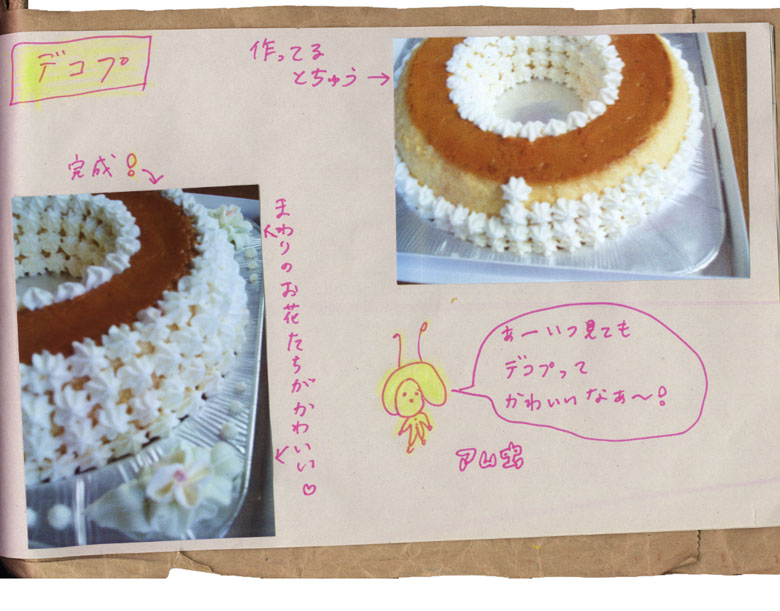 デコプ
作ってる
とちゅう→
完成!
まわりのお花たちがかわいい♡
あーいつ見ても
デコプって
かわいいなぁ〜!
アム虫